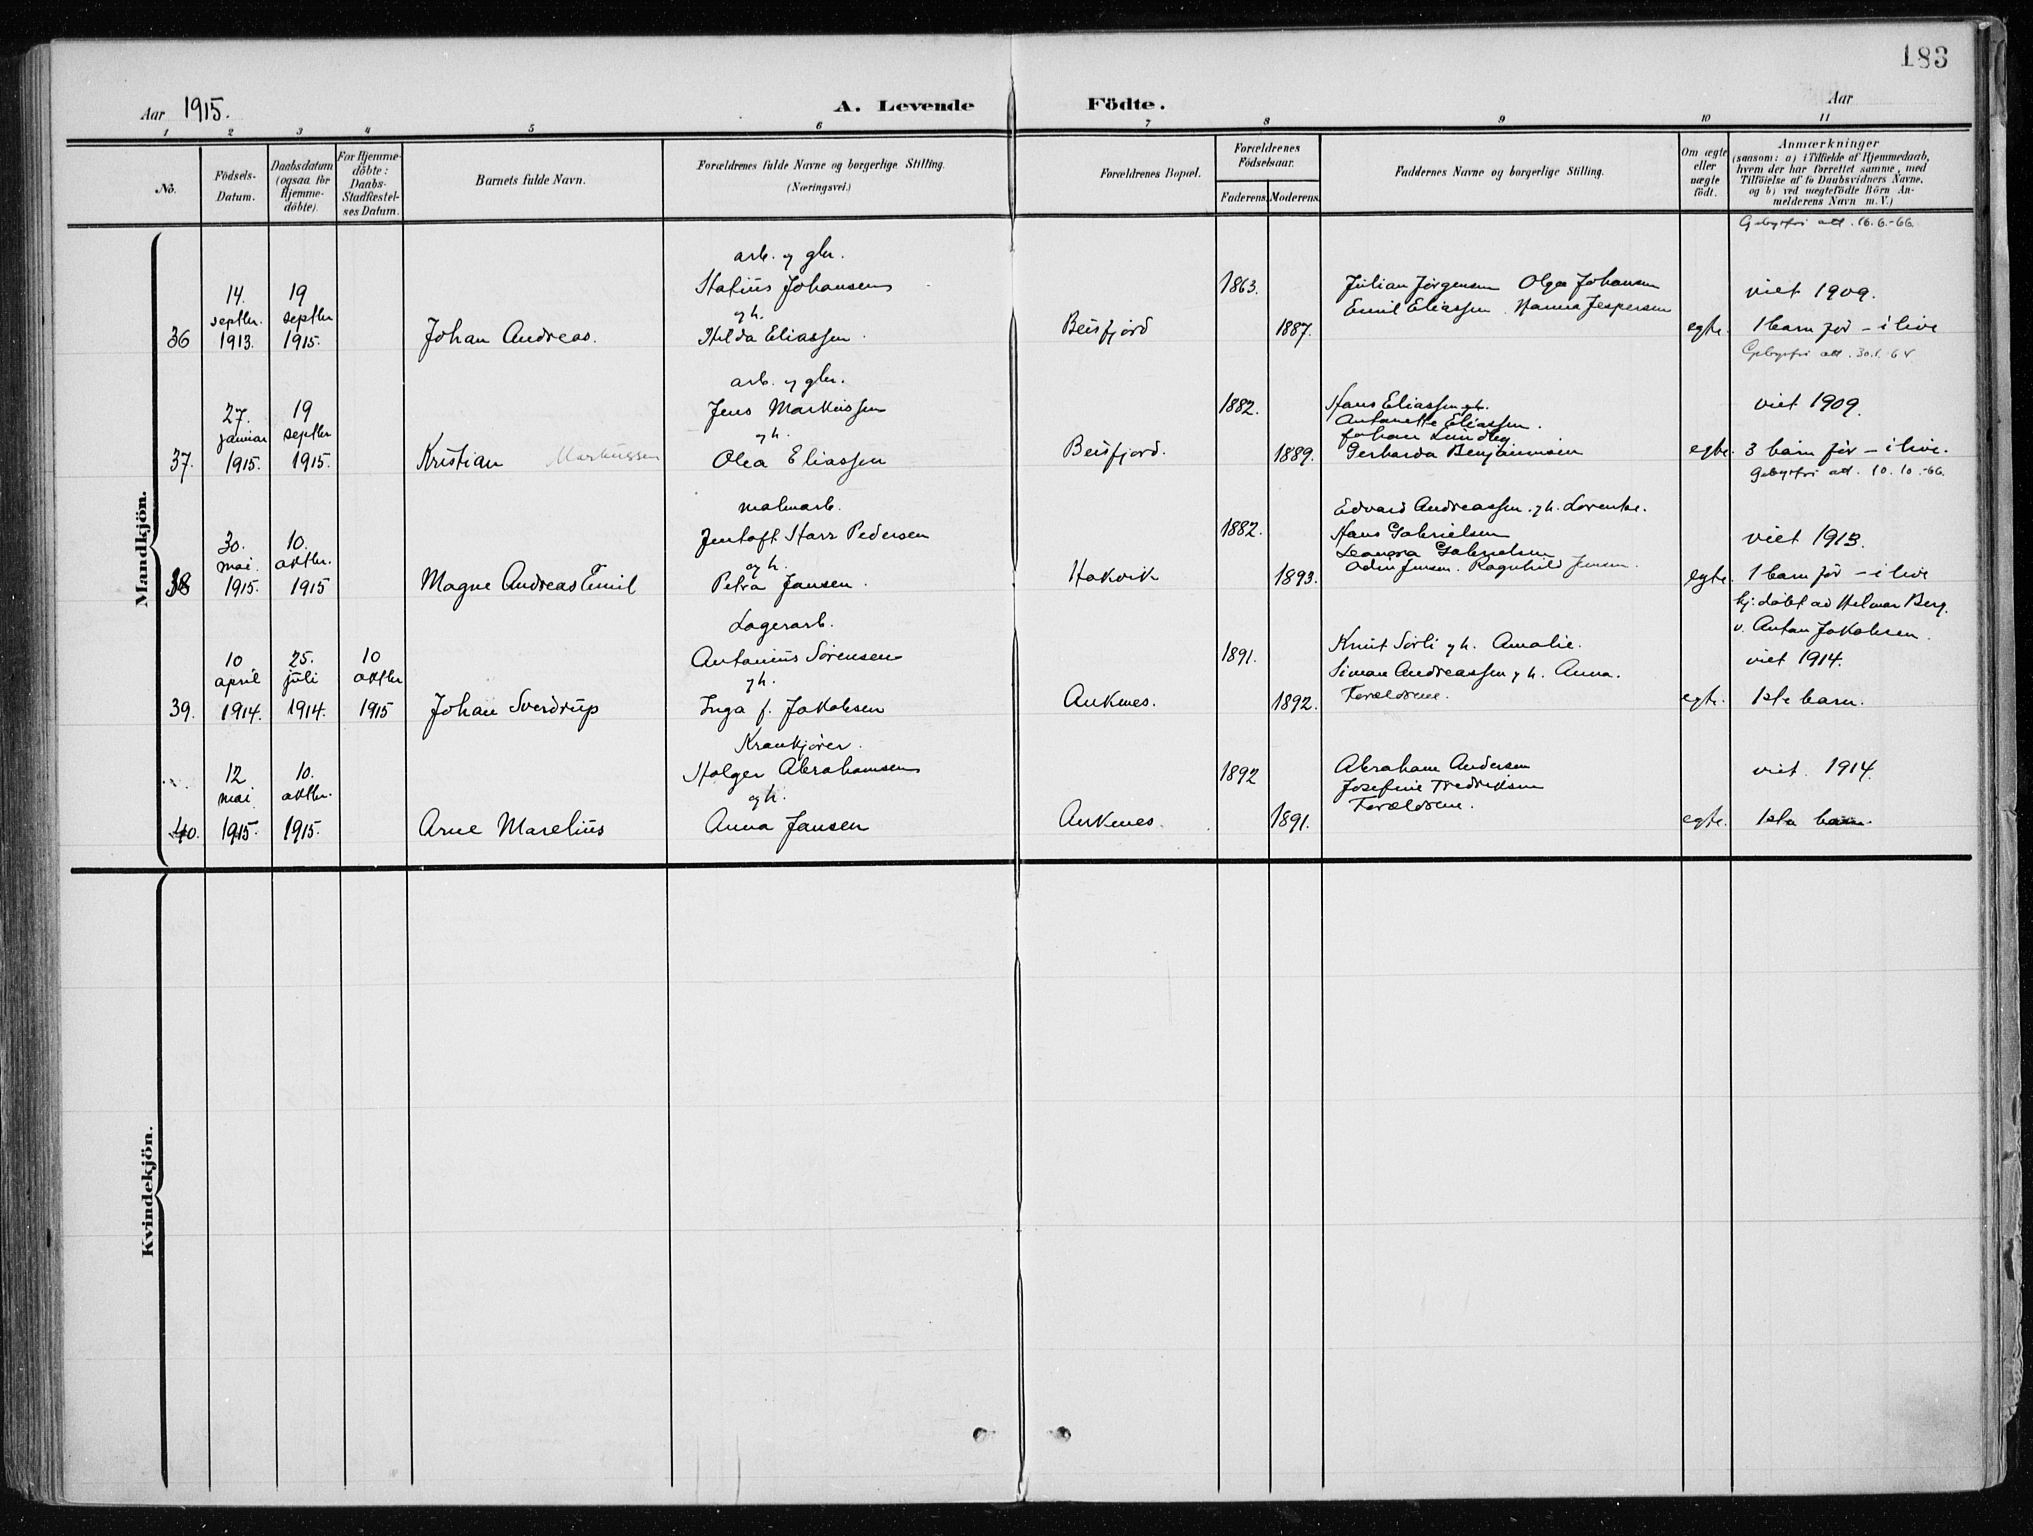 183
Aar 1915.
A. Levende Födte.
Aar
1 2 3 4 5 6 7 8 9 10 11
No.
Födsels-
Datum.
Daabsdatum
(ogsaa for
Hjemme-
döbte).
For Hjemme-
döbte:
Daabs-
Stadfæstel-
ses Datum.
Barnets fulde Navn.
Forældrenes fulde Navne og borgerlige Stilling.
(Næringsvei.)
Forældrenes Bopæl.
Forældrenes
Födselsaar.
Faderens. Moderens.
Faddernes Navne og borgerlige Stilling.
Om ægte
eller
uægte
födt.
Anmærkninger
(saasom: a) i Tilfælde af Hjemmedaab,
hvem der har forrettet samme, med
Tilföielse af to Daabsvidners Navne.
og b) ved uægtefödte Börn An-
melderens Navn m. V.)
Mandkjön.
Gebyrfri att. 16.6.-66.
36
14.
septbr.
1913.
19
septbr
1915.
Johan Andreas.
arb. og gbr.
Statius Johansen
og h.
Hilda Eliassen
Beisfjord
1863.
1887.
Julian Jørgensen Olga Johansen
Emil Eliassen. Hanna Jespersen
egte.
viet 1909.
1 barn før – i live
Gebyrfri att. 30.1.-64
37.
27.
januar
1915.
19
septbr
1915.
Kristian Markussen
arb. og gbr.
Jens Markussen
og h.
Olea Eliassen
Beisfjord.
1882.
1889.
Hans Eliassen og h.
Antonette Eliassen.
Johan Lundleg
Gerharda Benjaminsen
egte.
viet 1909.
3 barn før – i live.
Gebyrfri att. 10.10.-66.
38
30.
mai.
1915.
10.
oktbr.
1915
Magne Andreas Emil
malmarb.
Jentoft Harr Pedersen
og h.
Petra Jansen.
Hakvik
1882.
1893.
Edvard Andreassen. og h. Lorentse.
Hans Gabrielsen
Leonora Gabrielsen
Odin Jensen. Ragnhild Jensen.
egte.
viet 1913.
1 barn før – i live
39.
10
april
1914.
25.
juli
1914.
10
oktbr
1915
Johan Sverdrup
Lagerarb.
Antonius Sørensen
og h.
Inga f. Jakobsen
Ankenes.
1891.
1892.
Knut Sørli og h. Amalie.
Simon Andreassen og h. Anna.
Forældrene.
egte.
hj. døbt av Helmar Berg.
v. Anton Jakobsen.
viet 1914.
1ste barn.
40.
12
mai
1915.
10.
oktbr.
1915.
Arne Marelius
Krankjører.
Holger Abrahamsen
og h.
Anna Jansen
Ankenes.
1892
1891.
Abraham Andersen
Josefine Fredriksen
Forældrene.
egte.
viet. 1914.
1ste barn.
Kvindekjön.